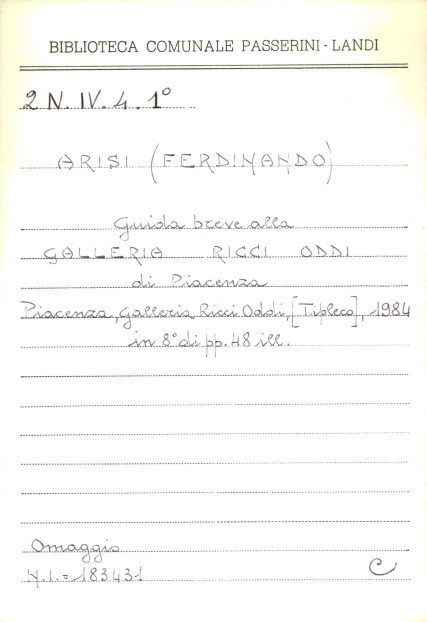 BIBLIOTECA COMUNALE PASSERINI-LANDI
2 N. IV. 4. 1°
ARISI (FERDINANDO)
Guida breve alla
GALLERIA RICCI ODDI
di Piacenza
Piacenza, Galleria Ricci Oddi, [Tipleco], 1984
in 8° di pp. 48 ill.
Omaggio
N.I.= 183431
C